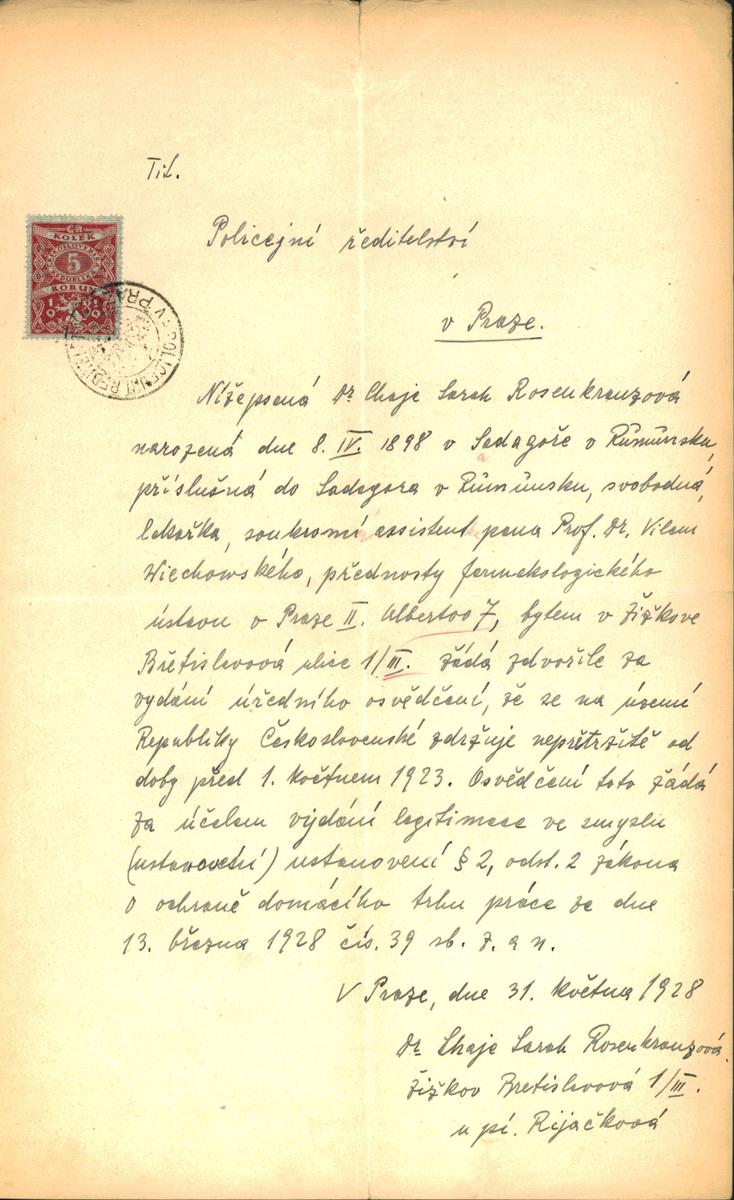 Tit.
Policejní ředitelství
v Praze.
ČS
KOLEK
5
KORUN
POLICEJNÍ ŘEDITEL V PRA
Nížepsaná Dr Chaje Sarah Rosenkranzová
narozená dne 8. IV. 1898 v Sadagoře v Růmůnsku,
příslušná do Sadagora v Růmůnsku, svobodná,
lekařka, soukromí assistent pana Prof. Dr. Vilem
Wiechowského, přednosty farmakologického
ústavu v Praze II. Albertov 7, bytem v Žižkove
Břetislavová ulice 1/III. žádá zdvořile za
vydání úředního osvědčení, že se na území
Republiky Československé zdržuje nepřetržitě od
doby před 1. květnem 1923. Osvědčení toto žádá
za účelem výdání legitimace ve smyslu
ustanovení § 2, odst. 2 zákona
o ochraně domácího trhu práce ze dne
13. března 1928 čís. 39 sb. z. a n.
V Praze, dne 31. května 1928
Dr Chaje Sarah Rosenkranzová.
Žižkov Bretislavová 1/III.
u pí. Rijačková